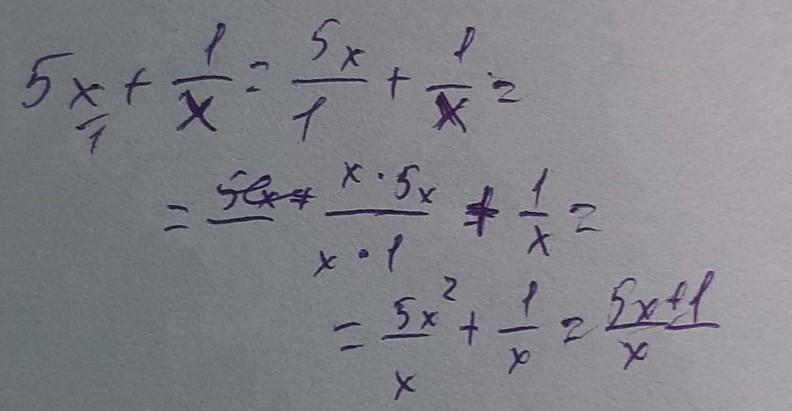 5x/1 + 1/x = 5x/1 + 1/x =
= x·5x/x·1 + 1/x =
= 5x²/x + 1/x = 5x+1/x